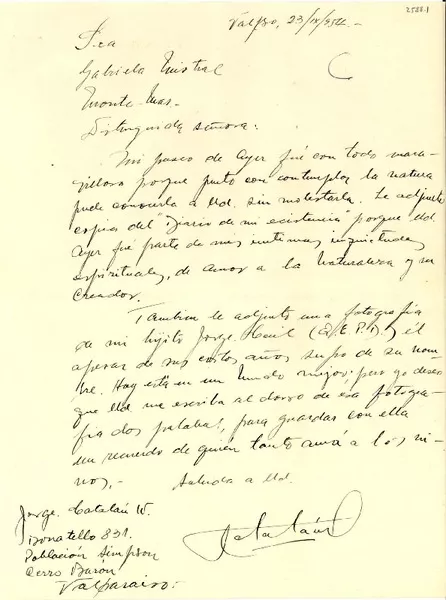 2588-1
Valpso, 23/IX/954.-
Sra
Gabriela Mistral
Monte Mar.-
Distinguida señora:
Mi paseo de Ayer fué con todo mara-
villoso porque junto con contemplar la natura
pude conocerla a Ud. sin molestarla. Le adjunto
copia del "Diario de mi existencia" porque Ud
Ayer fué parte de mis intimas inquietudes
espirituales, de amor a la Naturaleza y su
Creador.
Tambien le adjunto una fotografia
de mi hijito Jorge (Q.E.P.D.) él
apesar de sus cortos años supo de su nom-
bre. Hoy está en un mundo mejor; pero yo deseo
que Ud. me escriba al dorso de esa fotogra-
fia dos palabras, para guardar con ella
un recuerdo de quién tanto amá a los ni-
nos,-
Saluda a Ud.
Jorge Catalán W.
Donatello 831.
Población Simpson
Cerro Barón
Valparaiso.-
Catalán